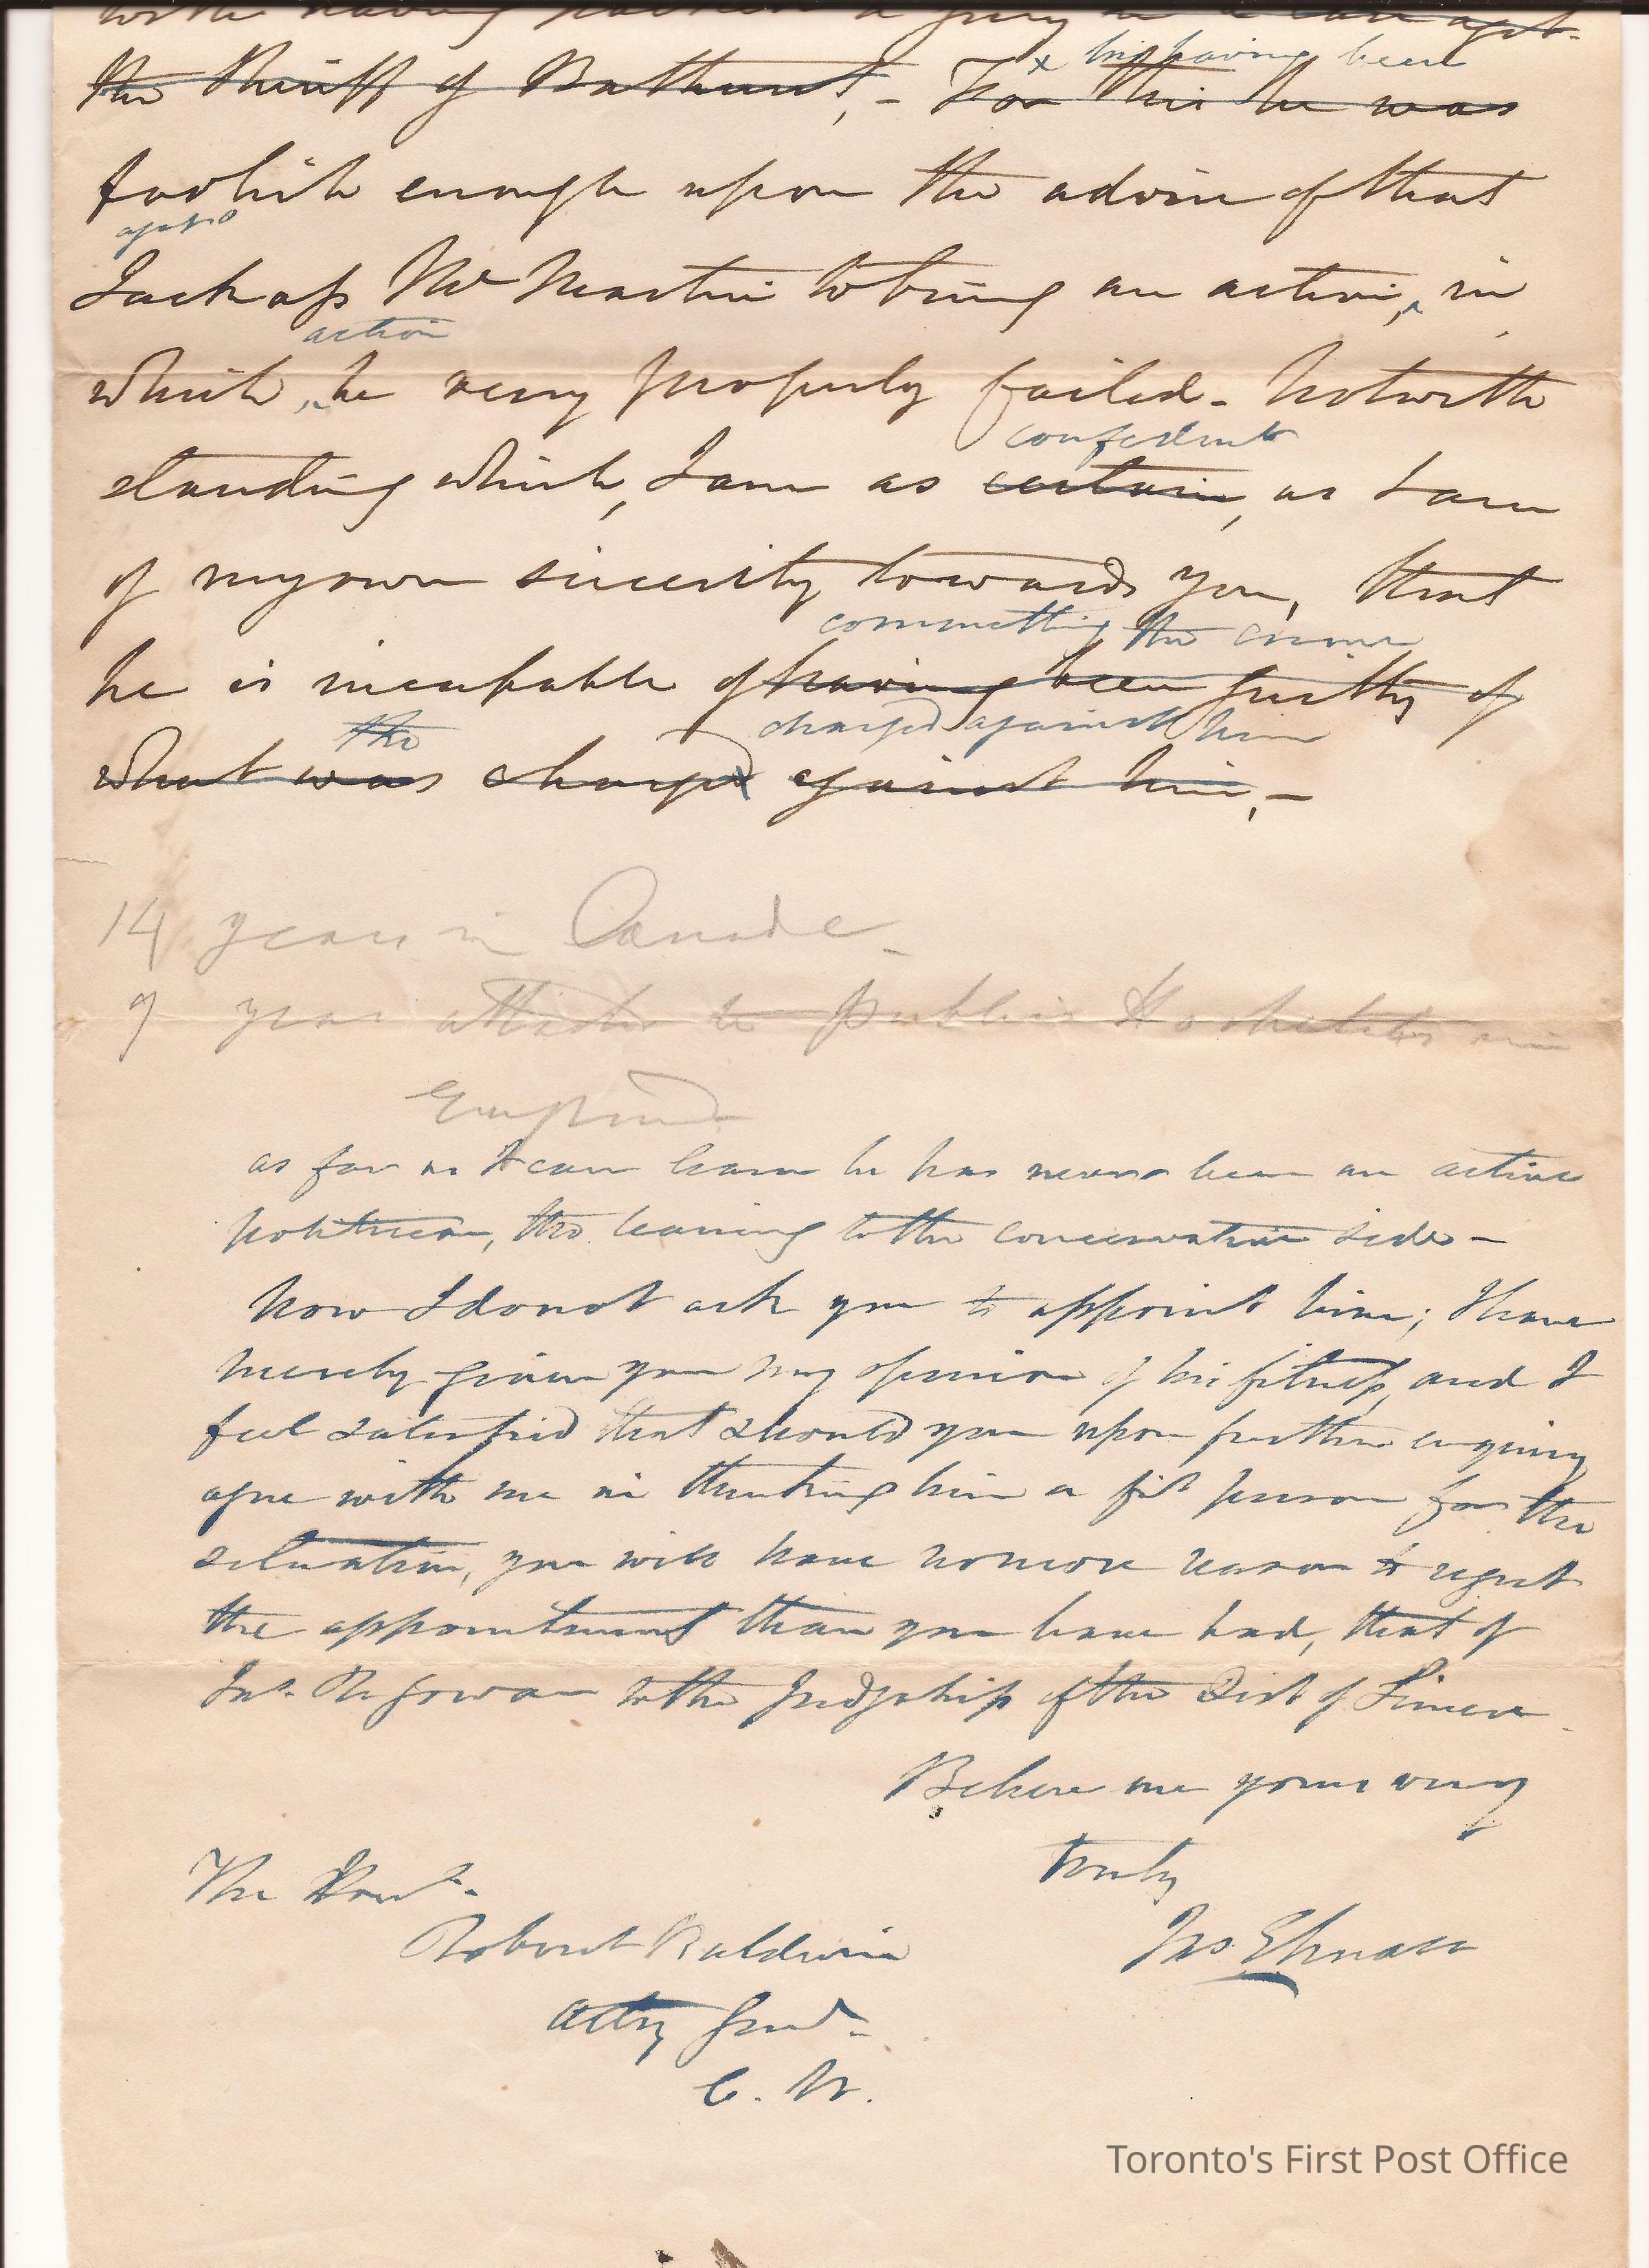 with having packed a jury in a case agst.
x his having been
the Sheriff of Bathurst,- For this he was
foolish enough upon the advice of that
Jackass McMartin to bring an action, in
action
which, he very properly failed- Notwith
confident
standing which, I am as certain, as I am
of my own sincerity towards you, that
committing the crime
he is incapable of having been guilty of
the charged against him
what was charged against him,-
14 years in Canada-
9 years attached to Public Hospitals in
England
as far as I can learn he has never been an active
politician, tho. leaning to the conservative side-
Now I do not ask you to appoint him; I have
merely given you my opinion of his fitness, and I
feel satisfied that should you upon further enquiry
agree with me in thinking him a fit person for the
situation, you will have no more reason to regret
the appointment than you have had, that of
Jas. McGowan to the Judgeship of the Dist of Simcoe
Believe me yours very
truly
The Honl.
Robert Baldwin
Jas
Atty Genl.
C. W.
Toronto's First Post Office